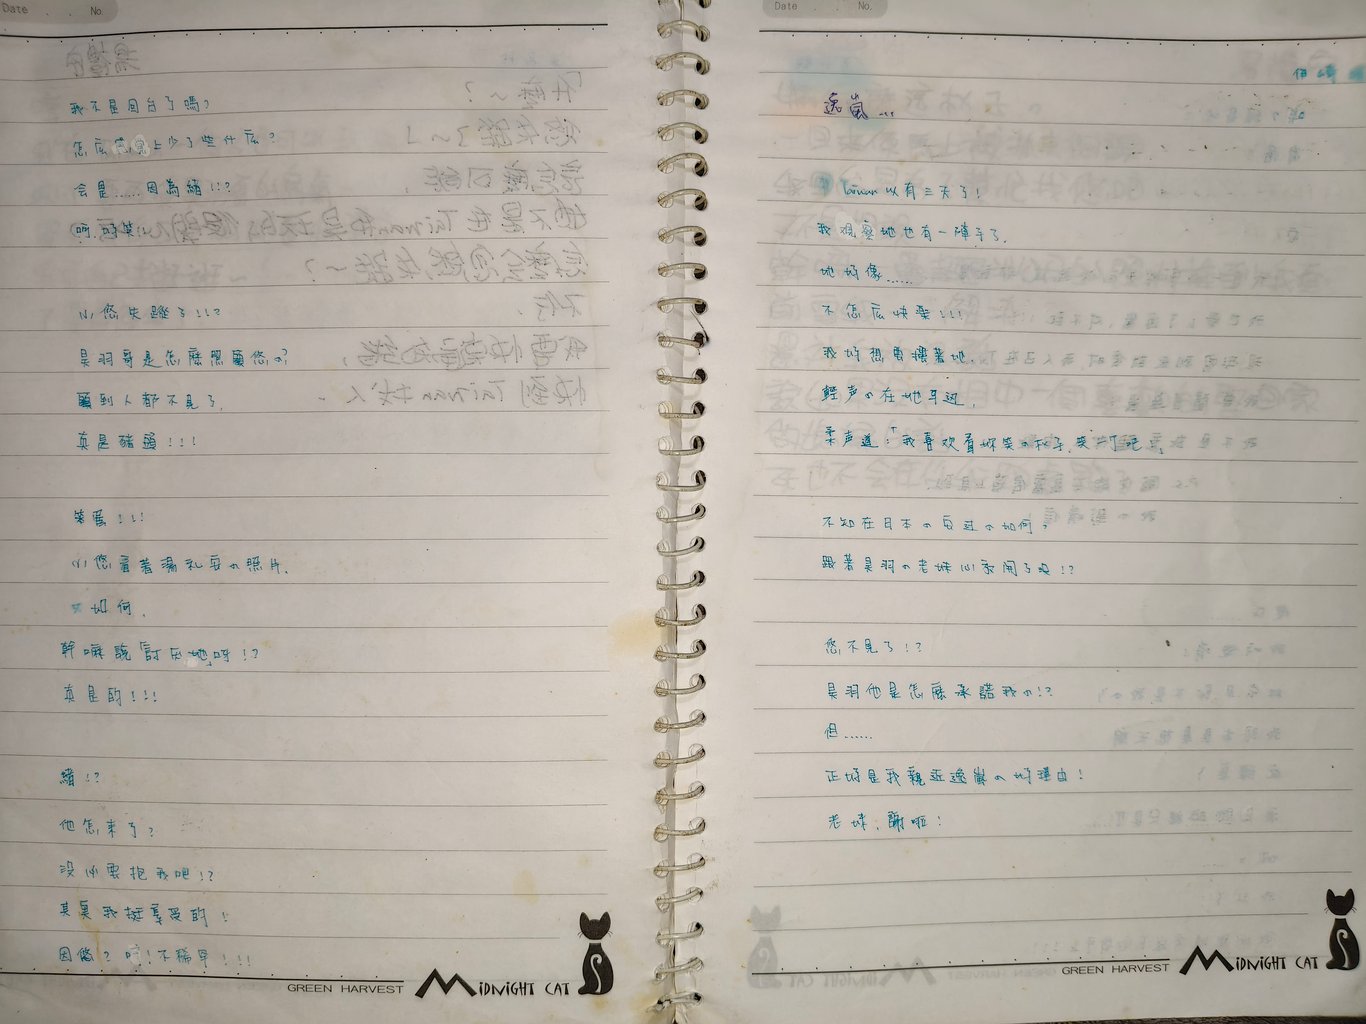 Date . . No.
我不是回台了嗎?
怎么感覺上少了些什么?
会是......因為緒!!?
呵.好笑
小悠失蹤了!!?
昊羽哥是怎麼照顧悠の?
顧到人都不見了.
真是豬頭!!!
笨蛋!!!
小悠看著湯礼安の照片.
如何.
幹嘛說討厭她呀!?
真是的!!!
緒!?
他怎来了?
沒必要抱我吧!?
其實我挺享受的!
因悠?哼!不稀罕!!!
GREEN HARVEST MIDNIGHT CAT
Date . . No.
逸嵐...
Taiwan以有三天了!
我觀察她也有一陣子了.
她好像......
不怎么快樂!!!
我好想要摟著她.
輕声の在她耳边.
柔声道:「我喜欢看妳笑の样子.笑一個吧」
不知在日本の
如何.
跟著昊羽の老妹心系開了沒!?
悠不見了!?
昊羽他是怎麼承諾我の!?
但......
正好是我親近逸嵐の好理由!
老妹.謝啦!
GREEN HARVEST MIDNIGHT CAT